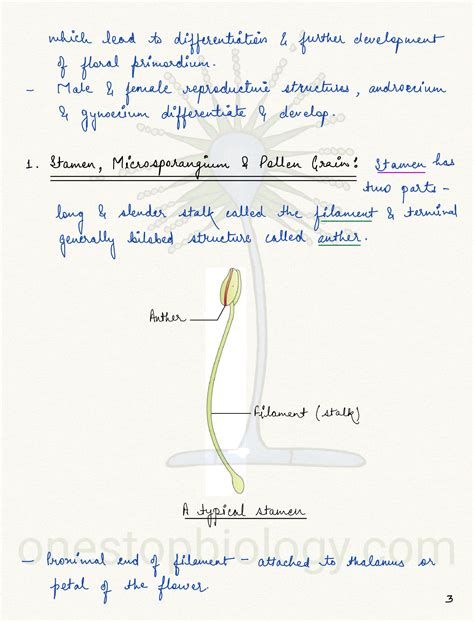 which lead to differentiation & further development
of floral primordium.
- Male & female reproductive structures, androecium
& gynoecium differentiate & develop.
1. Stamen, Microsporangium & Pollen Grain: Stamen has
two parts -
long & slender stalk called the filament & terminal
generally bilobed structure called anther.
Anther
Filament (stalk)
A typical stamen
onestopbiology.com
- Proximal end of filament - attached to thalamus or
petal of the flower.
3